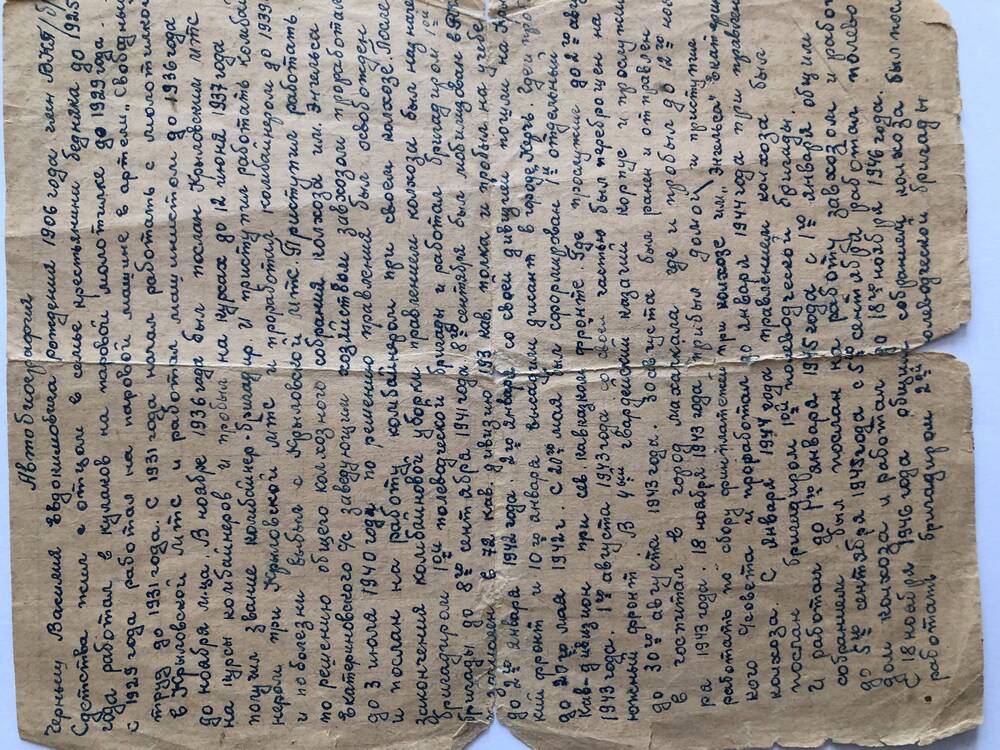 Автобиография
Черныш Василия Евдокимовича рождения 1906 года член ВКП/б
Сдетства жил с отцом в семье крестьянини бедняка до 1925
года работал в кулаков на паровой молотилке до 1929 года.
С 1929 года работал на паровой машине в артели „Свободный
труд до 1931 года. С 1931 года начал работать с молотилкой
в Крыловской МТС и работал машинистом до 1936 года
до ноября м-ца. В ноябре 1936 года был послан Крыловским МТС
на курсы комбайнеров и пробыл на курсах до 12 июня 1937 года
получил звание комбайнер-бригадир. И приступил работать комбай
нером при Крыловской МТС и проработал комбайнером до 1939
и по болезни выбыл с Крыловской МТС. Приступил работать
по решению общего колхозного собрания колхоза им. Энгельса
Екатериновского с/с заведующим хозяйством завхозом проработал
до 3 июля 1940 года по решению правления был освобожден
и послан на работу комбайнером при своем колхозе. После
закончения комбайновой уборки правлением колхоза был назначе
бригадиром 1ой полеводческой бригады и работал бригадиром 1ой
бригады до 8го сентября 1941 года. 8го сентября был мобилизован в
и зачислен в 72 кав. дивизию 193 кав. полка и пробыл на учебе
до 2го января 1942 года. 2го января со своей дивизией пошли на Кры
кий фронт и 10го января высадили дисант в городе Керчь. Где и про
до 20го мая 1942 г. С 20го мая был сформирован 1й отдельный
Кав-дивизион при сев. кавказком фронте. Где прослужил до 2го авг
1943 года. 1го августа 1943 года со своей частью был переброшен на
южный фронт. В 4ый гвардейский казачий корпус и прослужи
до 30го августа 1943 года. 30 августа был ранен и отправлен
в госпитал в город махачкала где и пробыл до 12го ноя
ря 1943 года. 18 ноября 1943 года прибыл домой и приступил
работать по сбору финплатежей при колхозе им „Энгельса" Екатерин
кого с/совета и проработал до января 1944 года при правлен
колхоза. С января 1944 года правлением колхоза был
послан бригадиром 1ой полеводческой бригады.
И работал до 1го января 1945 года с 1го января общим
собранием был послан на работу завхозом и работ
до 5го сентября 1945 года с 5го сентября работал полево
дом колхоза и работал до 18го ноября 1946 года.
С 18 ноября 1946 года общим собранием колхоза был посл
работать бригадиром 2ой полеводческой бригады